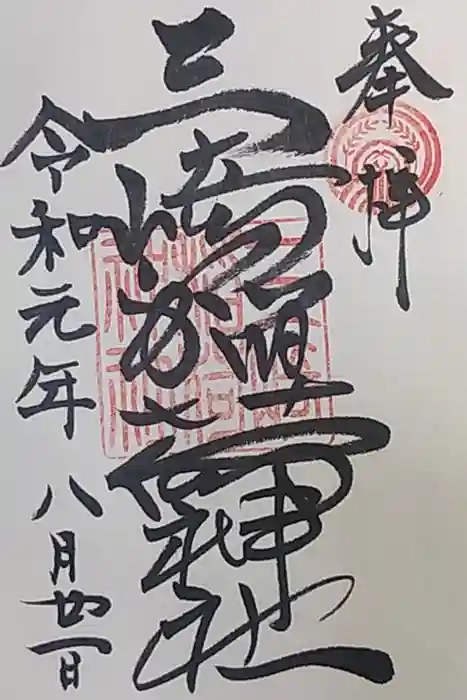 奉拝
三崎稲荷神社
令和元年 八月廿一日